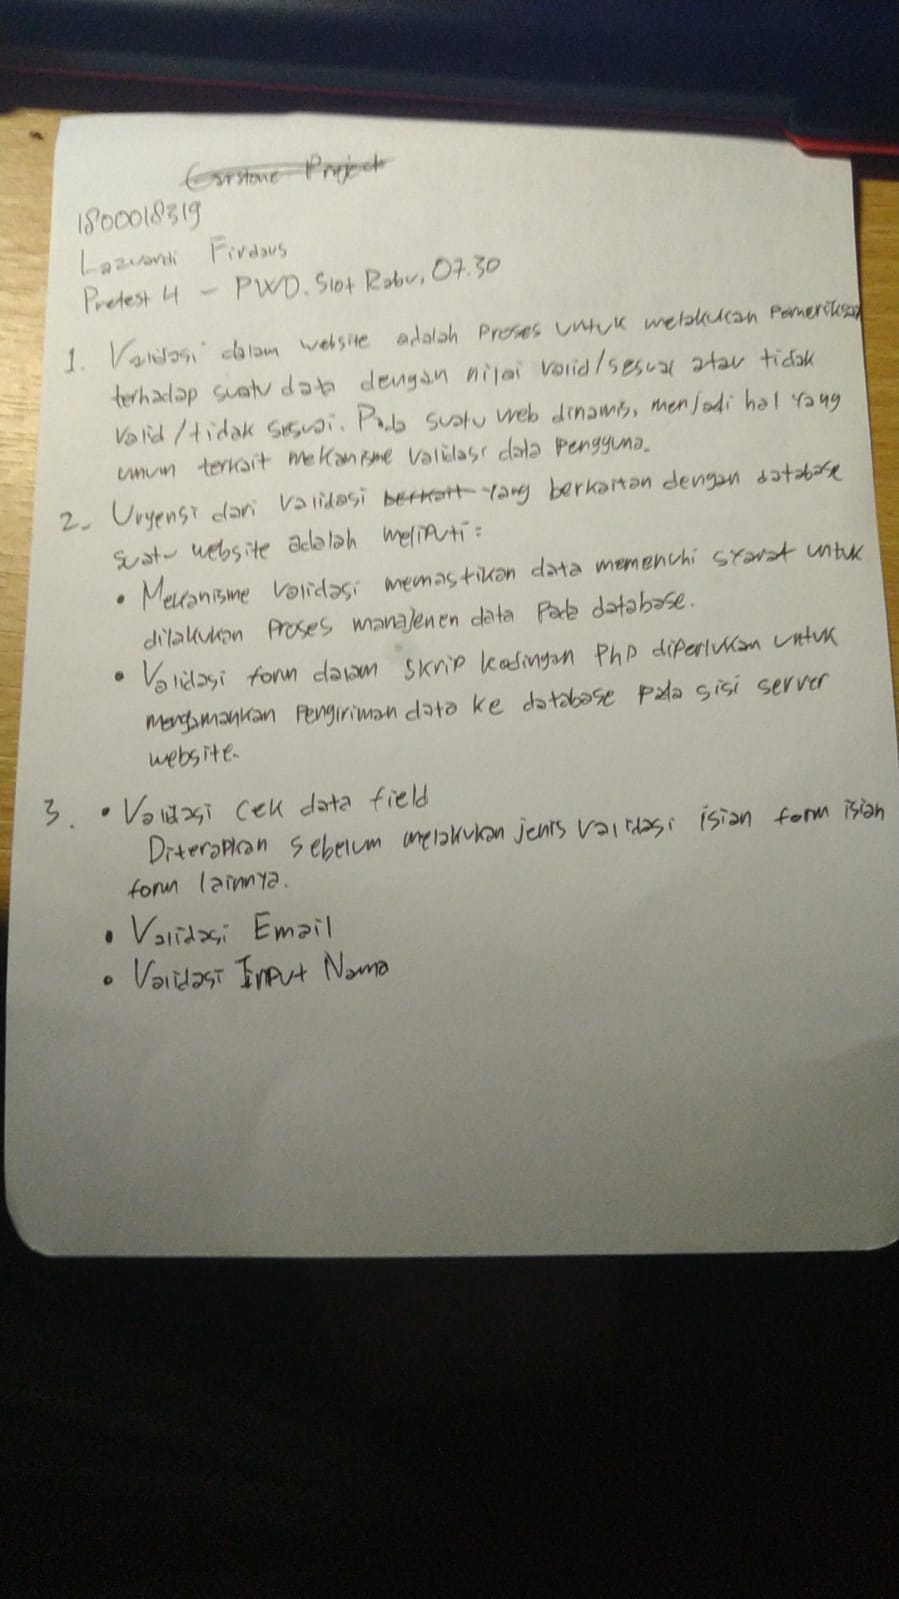 Project
1800018319
Lazuardi Firdaus
Pretest 4 - PWD. Slot Rabu, 07.30
1. Validasi dalam website adalah proses untuk melakukan pemeriksaan
terhadap suatu data dengan nilai valid/sesuai atau tidak
valid/tidak sesuai. Pada suatu web dinamis, menjadi hal yang
umum terkait mekanisme validasi data pengguna.
2. Urgensi dari validasi berkait yang berkaitan dengan database
suatu website adalah meliputi:
• Mekanisme validasi memastikan data memenuhi syarat untuk
dilakukan proses manajemen data pada database.
• Validasi form dalam skrip kodingan PHP diperlukan untuk
mengamankan pengiriman data ke database pada sisi server
website.
3. • Validasi cek data field
Diterapkan sebelum melakukan jenis validasi isian form isian
form lainnya.
• Validasi Email
• Validasi Input Nama